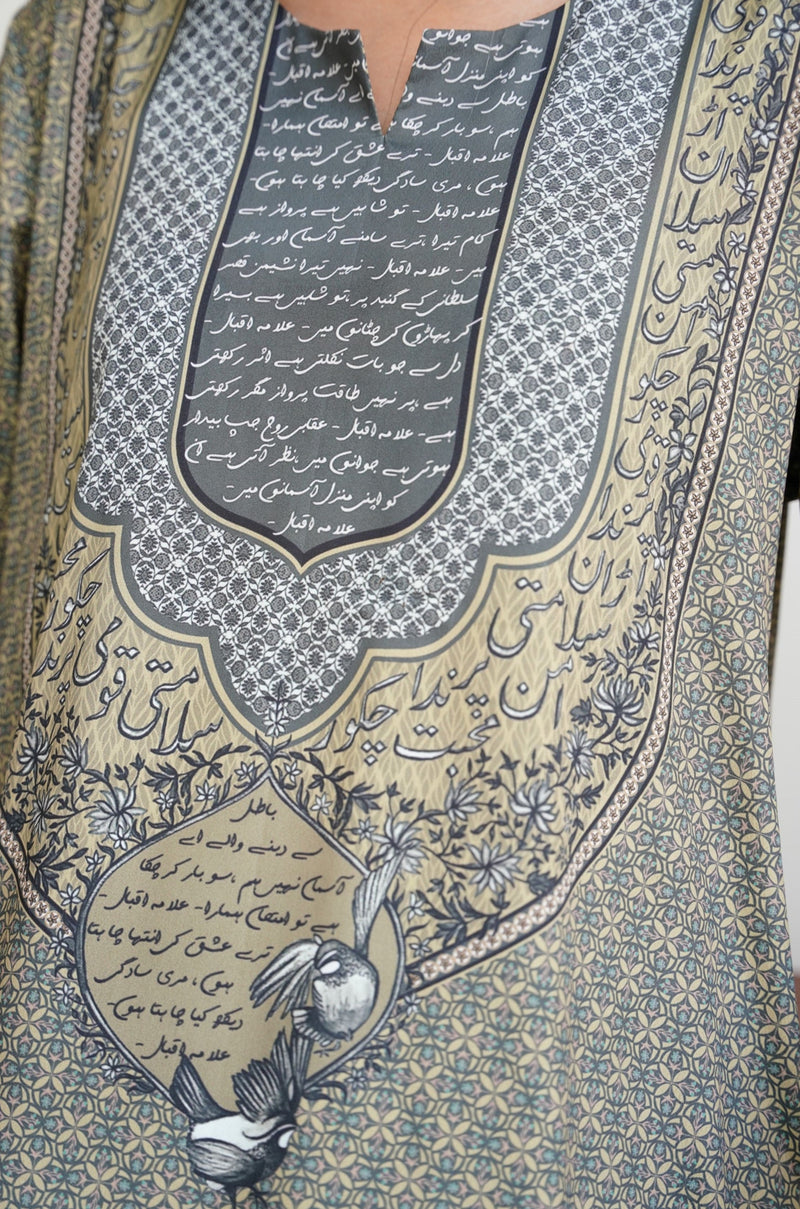 ہوتی ہے جوانوں میں نظر آتی ہے ان
کو اپنی منزل آسمانوں میں علامہ اقبال-
باطل سے دبنے والے اے آسمان نہیں
ہم ،سو بار کر چکا ہے تو امتحان ہمارا-
علامہ اقبال - ترے عشق کی انتہا چاہتا
ہوں ، مری سادگی دیکھ کیا چاہتا ہوں-
علامہ اقبال - تو شاہیں ہے پرواز ہے
کام تیرا ،ترے سامنے آسمان اور بھی
ہیں- علامہ اقبال - نہیں تیرا نشیمن قصر
سلطانی کے گنبد پر ،تو شاہیں ہے بسیرا
کر پہاڑوں کی چٹانوں میں- علامہ اقبال-
دل سے جو بات نکلتی ہے اثر رکھتی
ہے ،پر نہیں طاقت پرواز مگر رکھتی
ہے- علامہ اقبال - عقابی روح جب بیدار
ہوتی ہے جوانوں میں ،نظر آتی ہے ان
کو اپنی منزل آسمانوں میں-
علامہ اقبال -
قومی
پرندا
اڑ
ان
سلا
متی
امن
چکور
قومی
پرندا
اڑان
سلامتی
پرندا
امن
محبت چکور
سلامتی
قومی
پرندا
چکور
باطل
سے دبنے والے اے
آسمان نہیں ہم ،سو بار کر چکا
ہے تو امتحان ہمارا- علامہ اقبال-
ترے عشق کی انتہا چاہتا
ہوں ، مری سادگی
دیکھ کیا چاہتا ہوں-
علامہ اقبال -